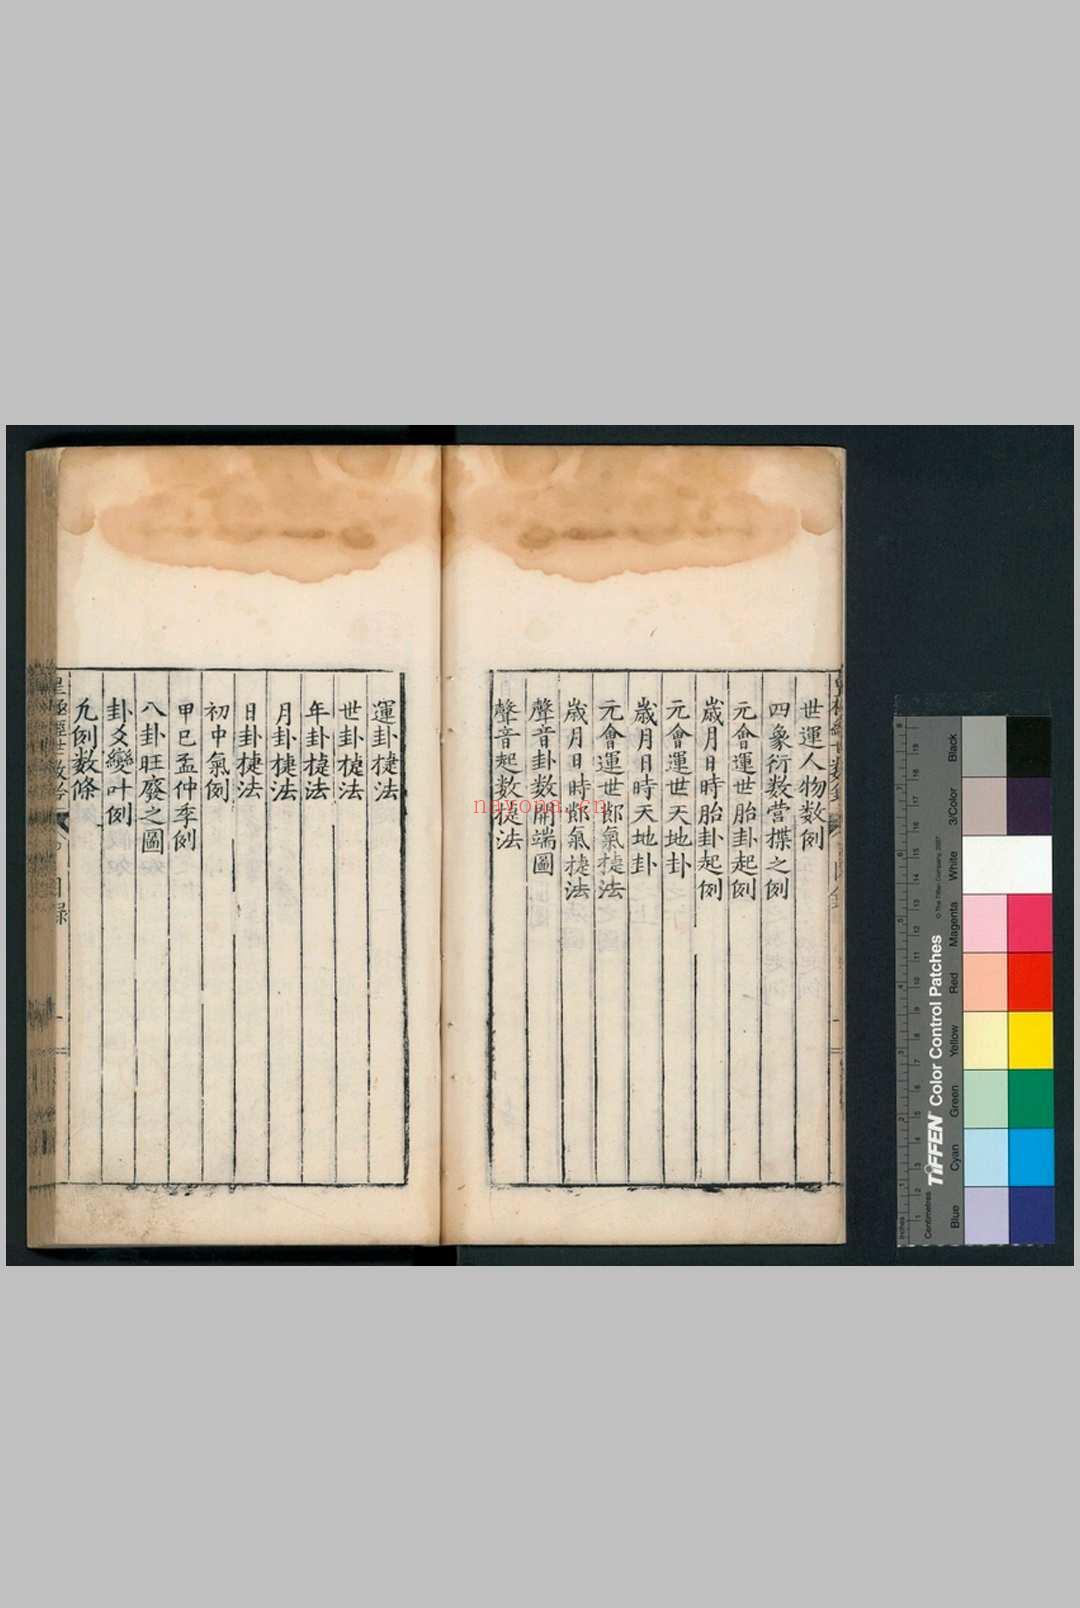 世運人物數例
四象衍數營揲之例
元會運世胎卦起例
歲月日時胎卦起例
元會運世天地卦
歲月日時天地卦
元會運世郎氣捷法
歲月日時郎氣捷法
聲音卦數開端圖
聲音起數捷法
運卦捷法
世卦捷法
年卦捷法
月卦捷法
日卦捷法
初中氣例
甲巳孟仲季例
八卦旺廢之圖
卦爻變叶例
九例數條
目錄
nayona.cn
Inches
Centimetres
TIFFEN Color Control Patches
© The Tiffen Company, 2007
Blue
Cyan
Green
Yellow
Red
Magenta
White
3/Color
Black